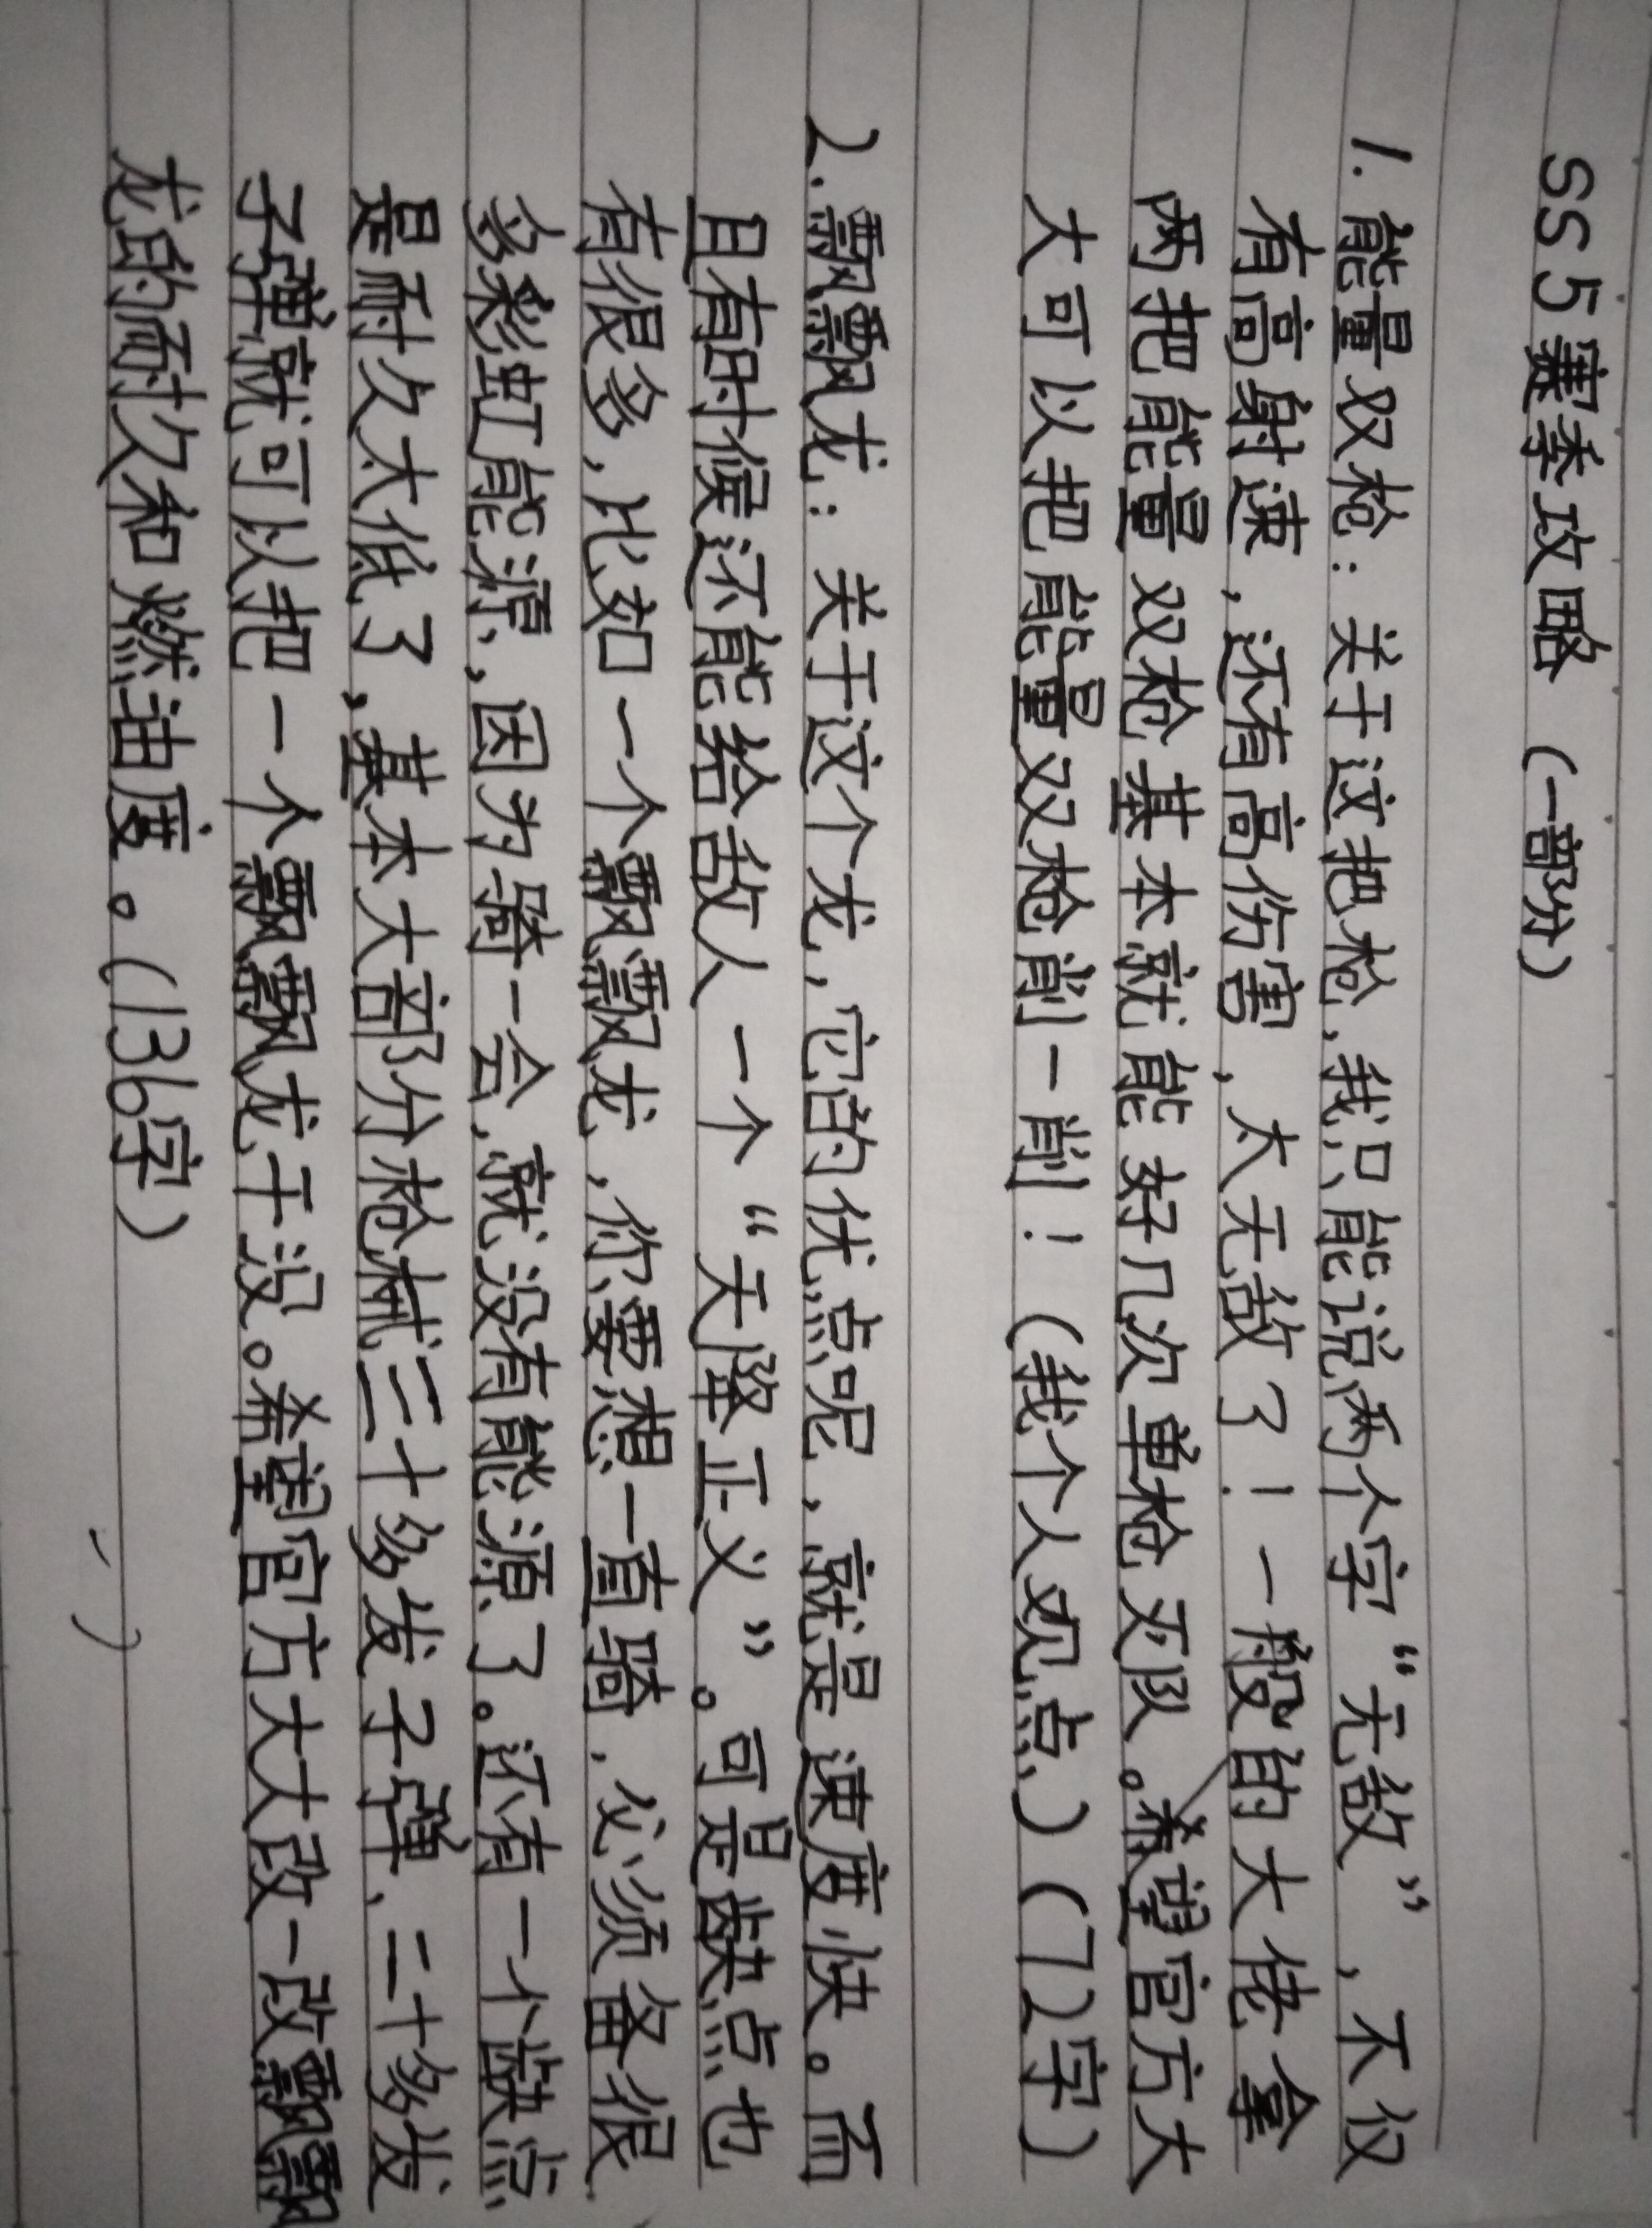 SS5赛季攻略（一部分）
1.能量双枪：关于这把枪，我只能说两个字“无敌”，不仅
有高射速，还有高伤害，太无敌了！一般的大佬拿
两把能量双枪基本就能好几次单枪灭队。希望官方大
大可以把能量双枪削一削！（我个人观点）（72字）
2.飘飘龙：关于这个龙，它的优点呢，就是速度快。而
且有时候还能给敌人一个“天降正义”。可是缺点也
有很多，比如一个飘飘龙，你要想一直骑，必须备很
多彩虹能源，因为骑一会，就没有能源了。还有一个缺点
是耐久太低了，基本大部分枪械三十多发子弹，二十多发
子弹就可以把一个飘飘龙干没。希望官方大大改一改飘飘
龙的耐久和燃油度。（136字）